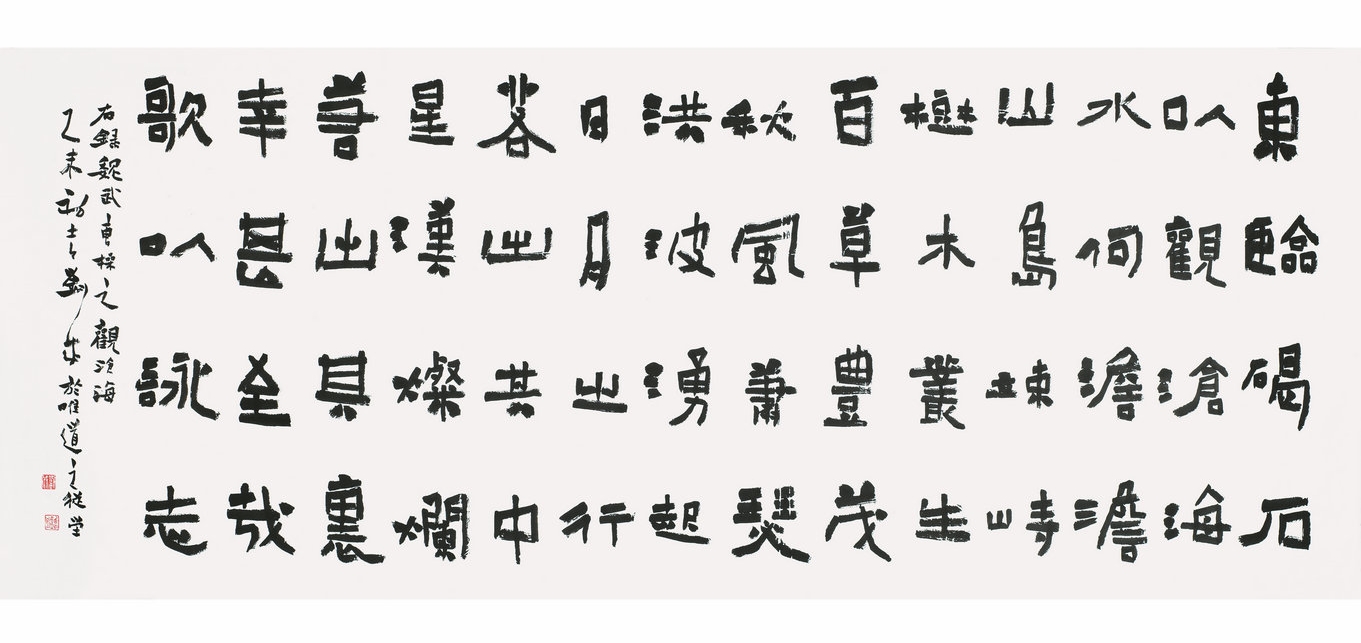 東臨碣石
以觀滄海
水何澹澹
山島竦峙
樹木叢生
百草豐茂
秋風蕭瑟
洪波湧起
日月之行
若出其中
星漢燦爛
若出其裏
幸甚至哉
歌以詠志
右錄魏武曹操之觀滄海
乙未 於唯道之 堂